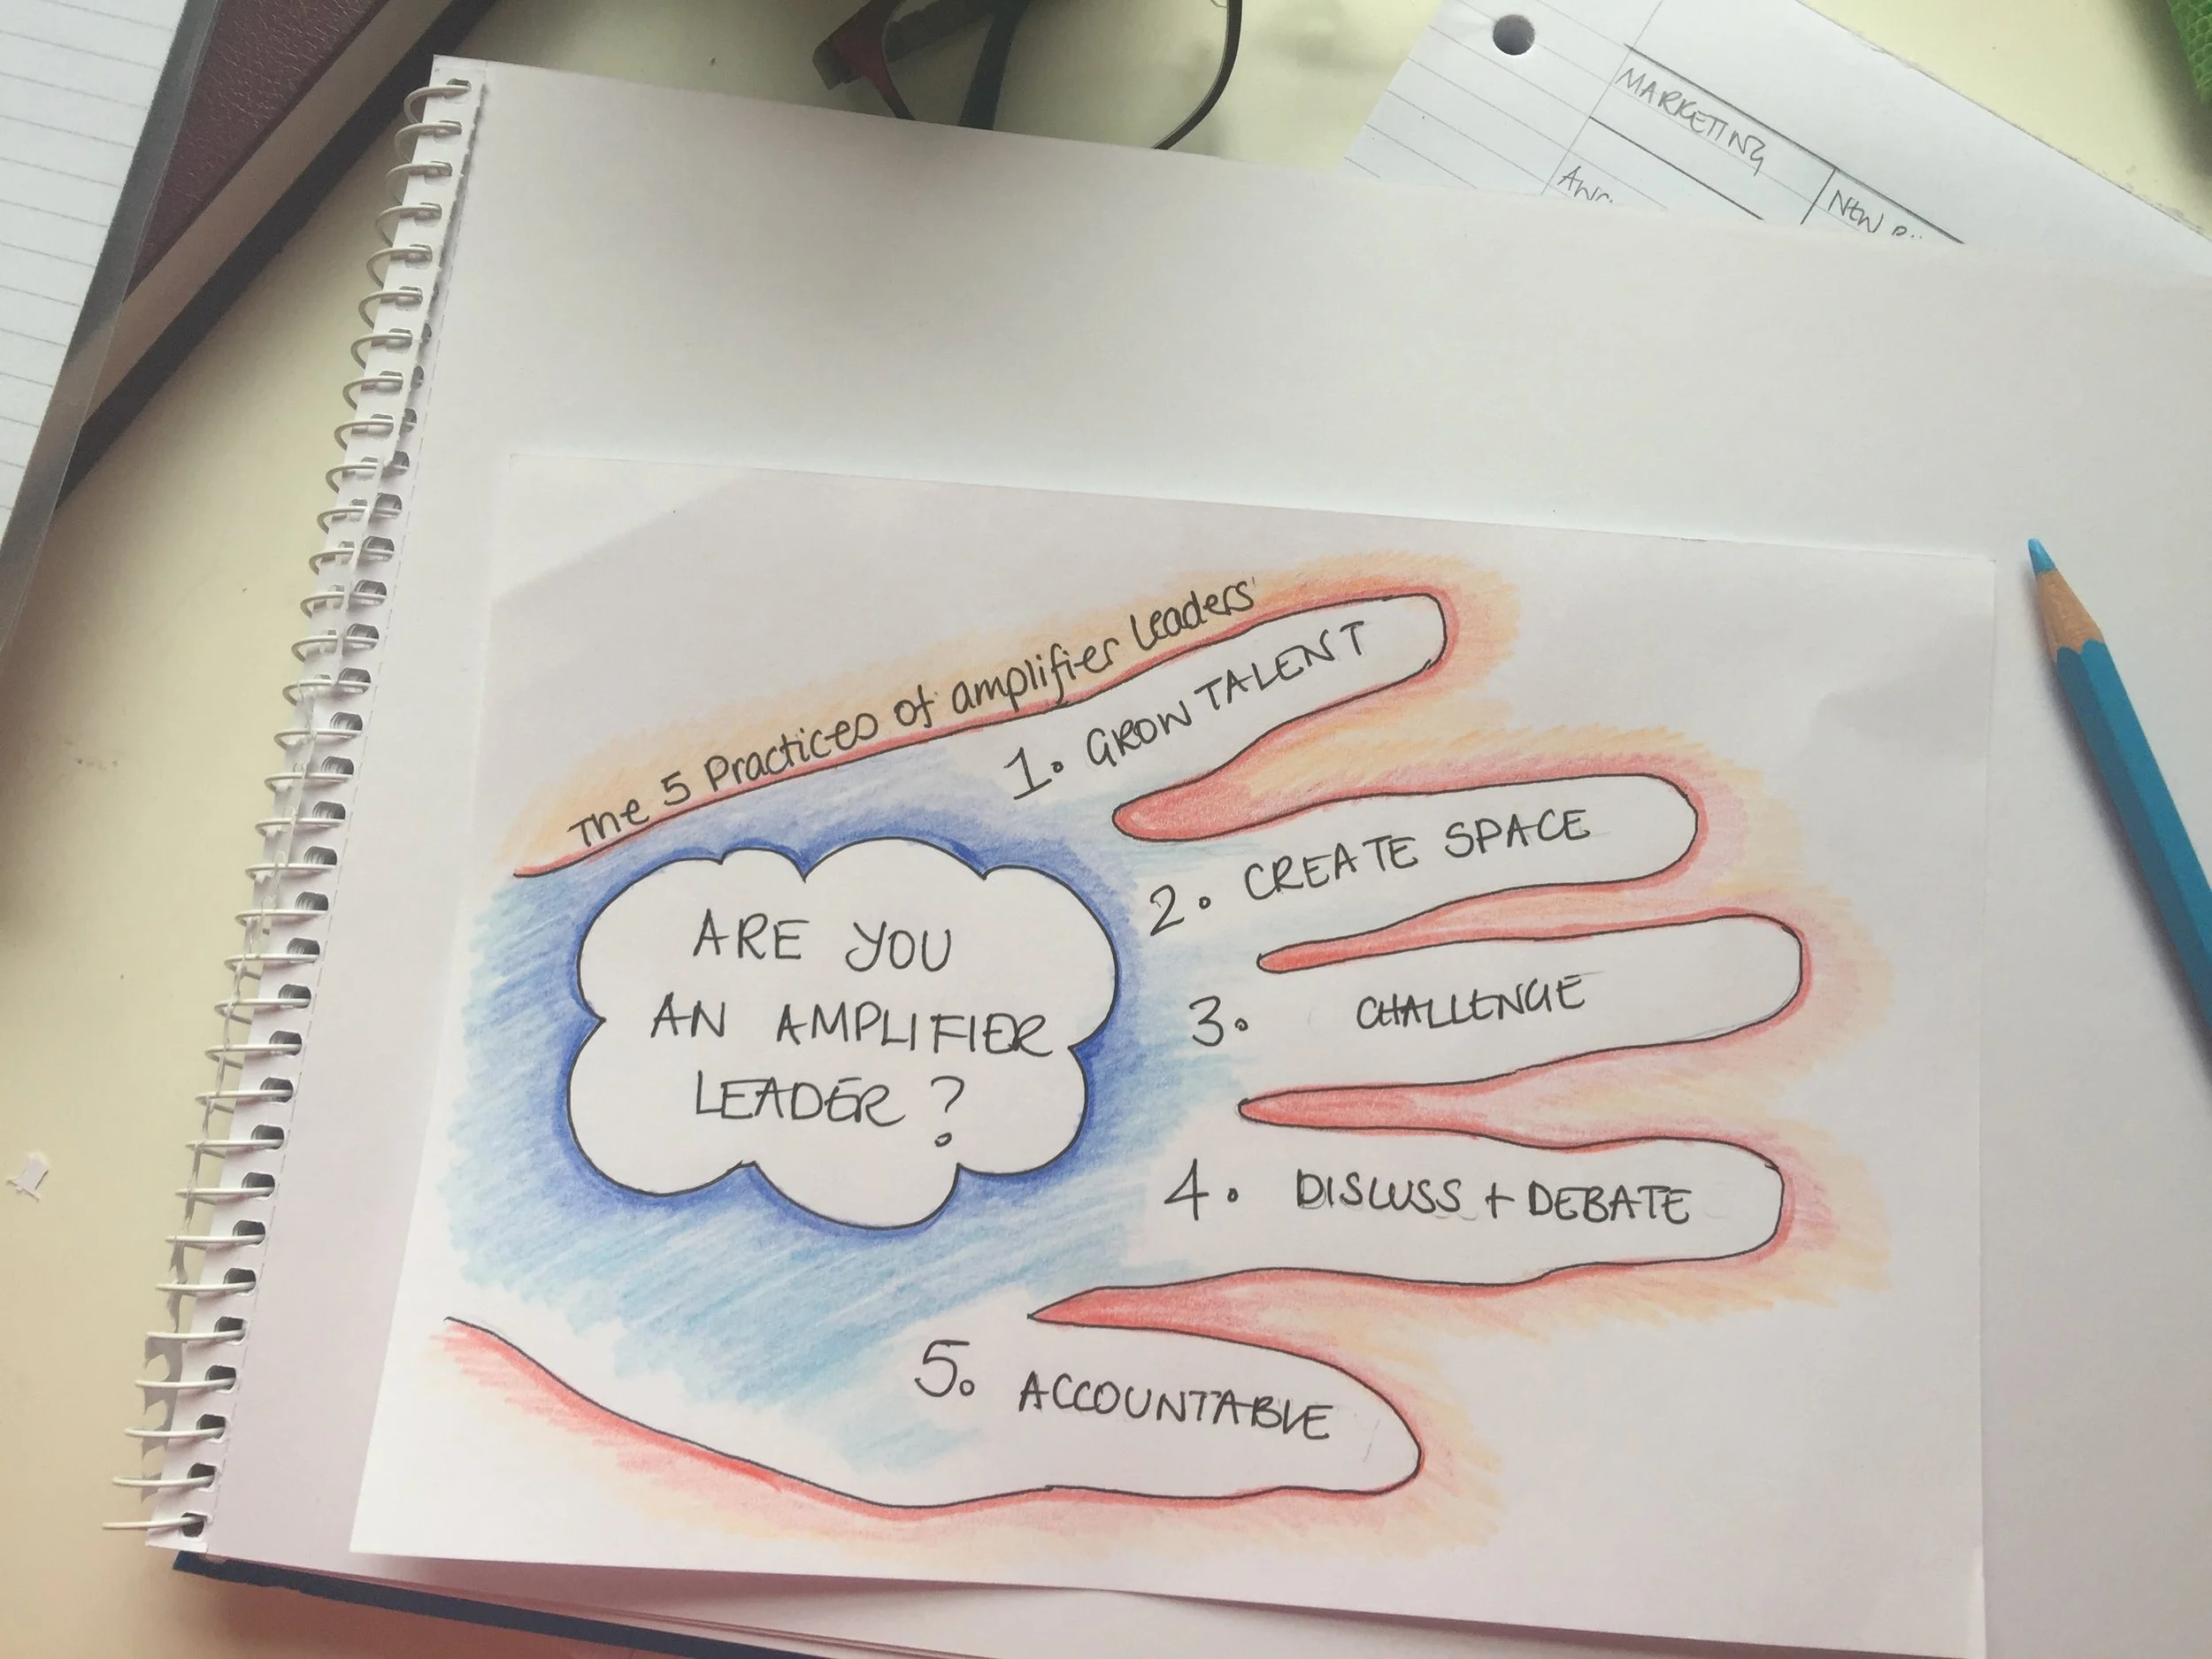 MARKETING
NEW
The 5 Practices of amplifier leaders
1. GROW TALENT
2. CREATE SPACE
3. CHALLENGE
4. DISCUSS + DEBATE
5. ACCOUNTABLE
ARE YOU
AN AMPLIFIER
LEADER ?